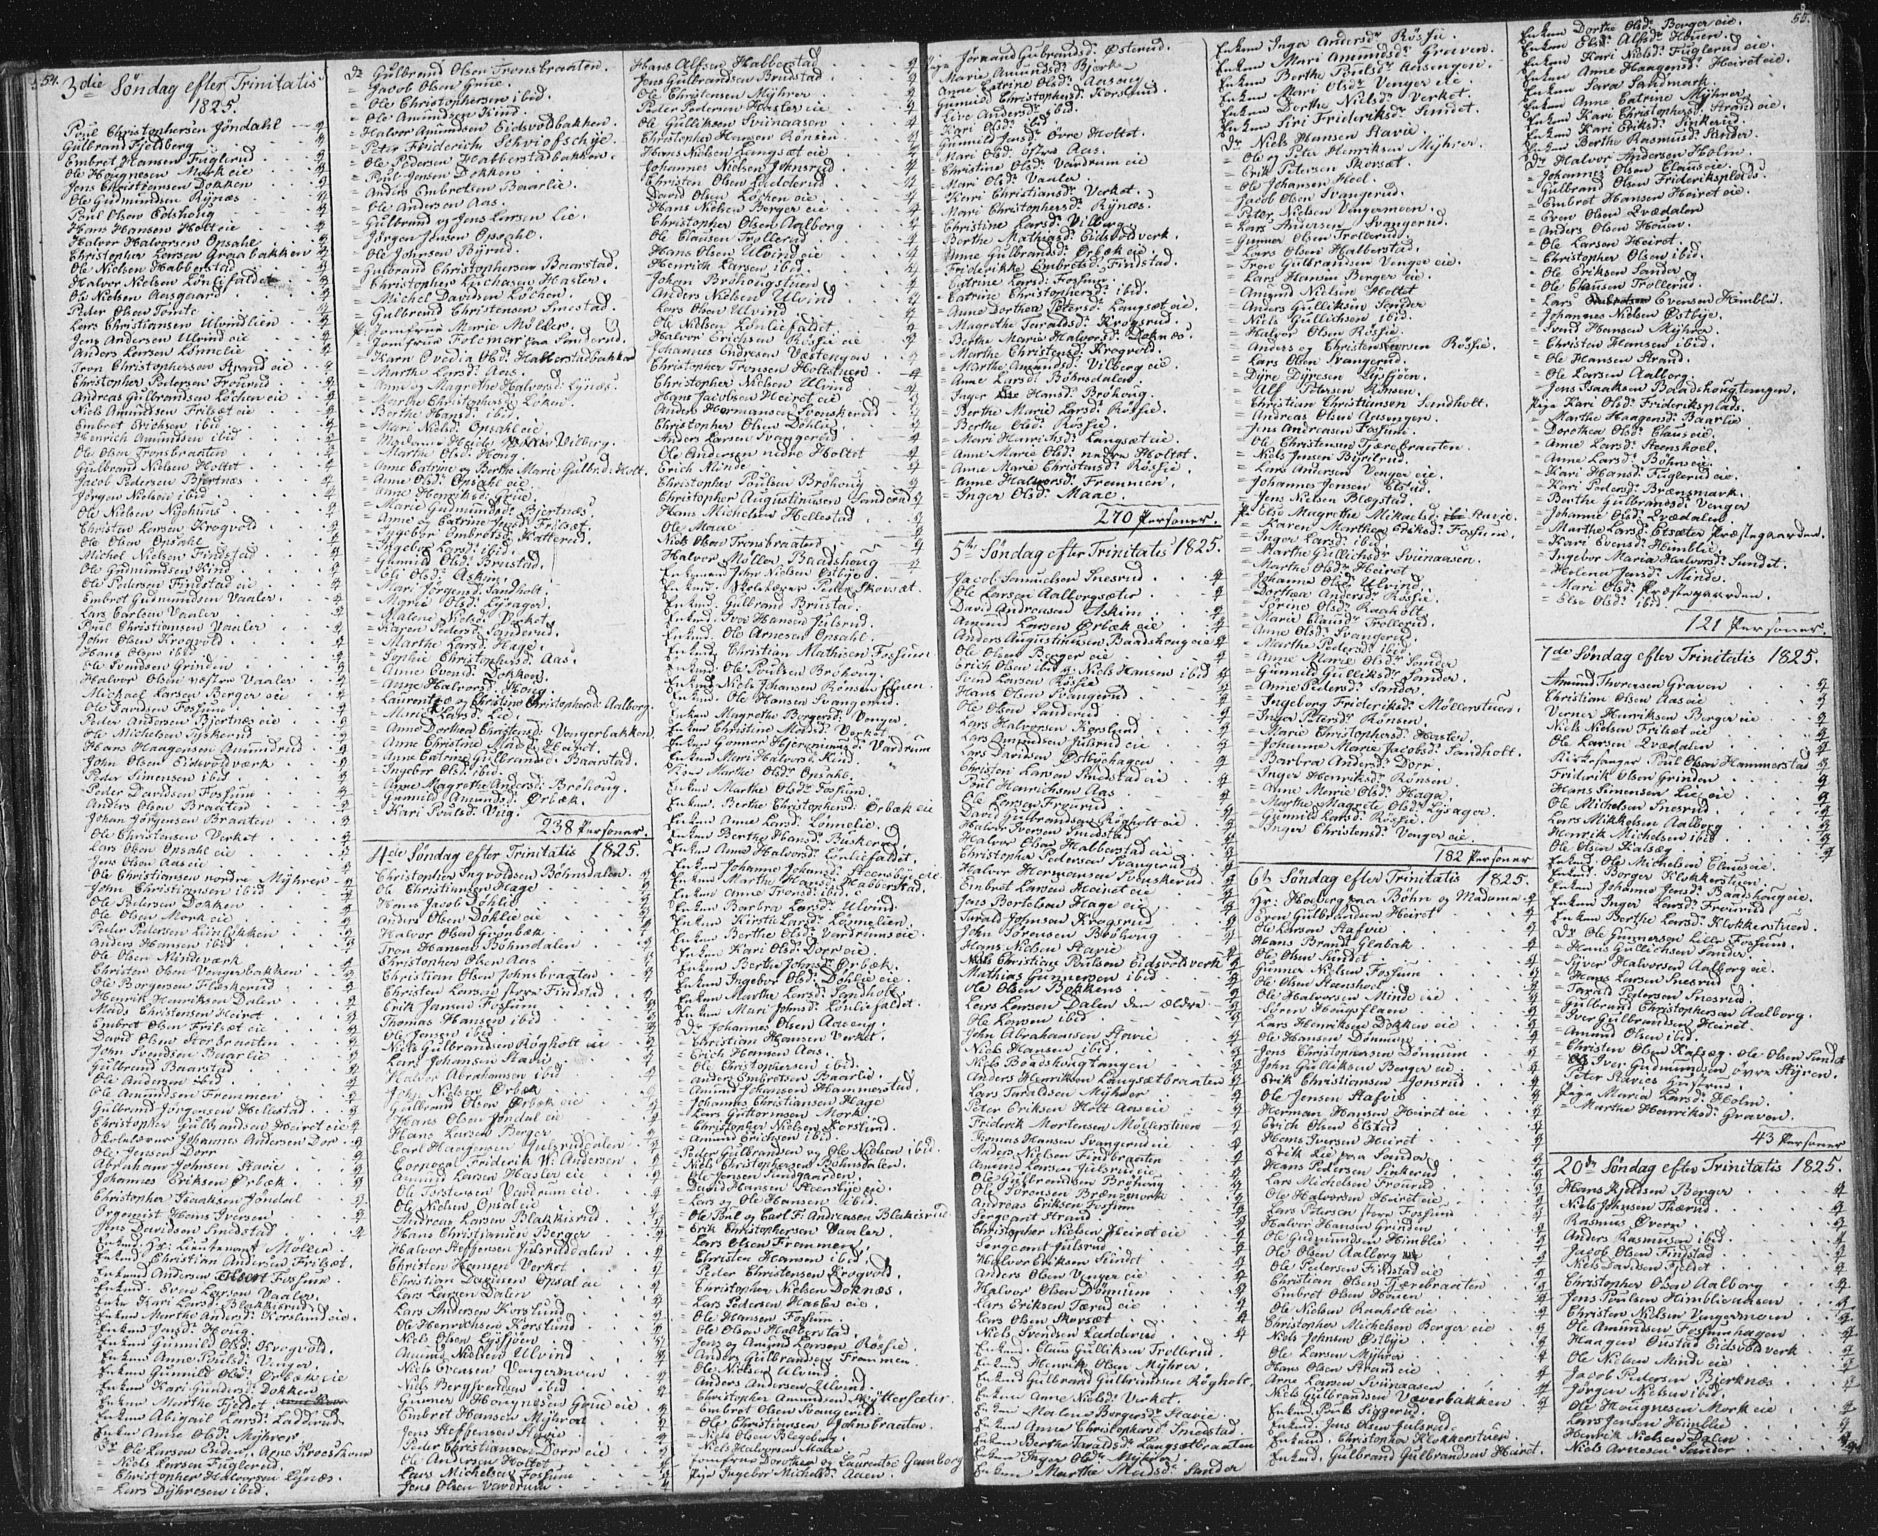 54.
3die Søndag efter Trinitatis
1825.
Poul Christophersen Jöndahl
Gulbrand Fjeldberg
Embret Hansen Fuglerud
Ole Hougnesen Mork eie
Jens Christiansen Dokken
Ole Gudmundsen Rÿnæs
Poul Olsen Edshoug
Hans Hansen Holt eie
Halvor Halvorsen Opsahl
Christopher Larsen Grønbakken
Ole Nielsen Habberstad
Halvor Nielsen Lönliefaldet
Ole Nielsen Aasgaard
Peder Olsen Tomte
Lars Christiansen Ulvindlien
Jens Andersen Ulvind eie
Anders Larsen Lönnelie
Tron Christophersen Strand eie
Christopher Pedersen Frourud
Andreas Gulbrandsen Löchen eie
Niels Amundsen Frilsæt eie
Embret Erichsen ibid
Henrich Amundsen ibid
Ole Olsen Tronsbraaten
Gulbrand Nielsen Holtet
Jacob Pedersen Bjertnæs
Jörgen Nielsen ibid
Ole Nielsen Nÿehuus
Christen Larsen Krogvold
Ole Olsen Opsahl
Michel Nielsen Findstad
Ole Gudmundsen Kind
Ole Pedersen Findstad eie
Embret Gudmundsen Vaaler
Lars Carlsen Vaaler
Poul Christiansen Vaaler
John Olsen Krogvold
Hans Olsen ibid
Ole Svendsen Grinden
Halvor Olsen næstre Vaaler
Michael Larsen Berger eie
Ole Davidsen Fossum
Peder Andersen Bjertnæs eie
Ole Michelsen Tÿskerud
Hans Haagensen Amundrud
John Olsen Eidsvoldværk
Peder Simensen ibid
Peder Davidsen Fossum
Anders Olsen Braaten
Johan Jörgensen Braaten
Ole Christensen Verket
Lars Olsen Opsahl eie
Jens Olsen Aas eie
Ole Christiansen nordre Mÿhrer
John Christiansen ibid
Ole Pedersen Dokken
Ole Olsen Mork eie
Peder Pedersen Lundbakken
Anders Hansen ibid
Ole Olsen Mindeværk
Christen Olsen Vengerbakken
Ole Borgersen Fleskerud
Henrik Henriksen Dalen
Mads Christensen Heiret
Embret Olsen Frilsæt eie
David Olsen Storbraaten
John Svendsen Baarlie
Gulbrand Baarstad
Ole Andersen ibid
Ole Amundsen Fremmen
Gulbrand Jörgensen Hellestad
Christopher Gulbrandsen Heiret eie
Skolelærer Johannes Andersen Dorr
Ole Jensen Dorr
Abraham Johnsen Stavie
Johannes Eriksen Ørbæk
Christopher Isaaksen Jöndal
Organist Hans Iversen
Jens Davidsen Smedstad
Enkem: Hr: Lieutenant Möller
Enkem: Christian Andersen Frilsæt.
Enkem: Andersen Fossum
Enkem: Even Larsen Vaaler
Enke: Kari Larsd: Blakkisrud
Enken Marthe Andersd: Korslund eie.
Enken Jensd: Houg.
Enken Gunnild Olsd: Krogvold.
Enken Anne Poulsd: Venger
Enken Gunnild Olsd: Ørbæk eie
Enken Kari Gundersd: Dokken
Enken Marthe Fjeldet
Enken Abigail Larsd: Ledderud
Enken Anne Olsd: Mÿhrer
Dr: Ole Larsen Enden, Arne Præsthuus
= Niels Larsen Fuglerud.
= Christopher Halvorsen Lÿnæs.
= Lars Dÿhresen ibid.
Dr Gulbrand Olsen Tronsbraaten.
= Jacob Olsen Grue.
= Ole Christophersen ibid.
= Ole Amundsen Kind.
= Halvor Amundsen Eidsvoldbakken.
= Peter Friderich Schviofschÿe.
= Ole Pedersen Habberstadbakken.
= Poul Jensen Dokken.
= Anders Embretsen Baarlie.
= Ole Andersen Aas.
= Gulbrand og Jens Larsen Lie.
= Jörgen Jensen Opsahl.
= Ole Johnsen Bÿrud.
= Gulbrand Christophersen Baarstad.
= Christopher Erichsen Hasler.
= Michel Davidsen Löchen.
= Gulbrand Christensen Smestad.
P. Jomfrue Marie Möller.
= Jomfrue Folemar paa Sanderud.
= Karn Ovedia Olsd: Habberstadbakken
= Marthe Larsd: Aas.
= Anne og Magrethe Halvorsd: Lÿnæs.
= Marthe Christophersd: Löken.
= Berthe Hansd: ibid.
= Mari Nielsd: Opsahl eie.
= Marthe Olsd: Houg.
= Anne Catrine og Berthe Marie Gulbrd: Holt.
= Anne Olsd: Opsahl eie.
= Anne Henriksd: Grue.
= Marie Gudmundsd: Bjertnæs
= Anne og Catrine Jensd: Frilsæt.
= Ingebor Embretsd: Hatterud.
= Ingebor Larsd: ibid.
= Gunnild Olsd: Brustad.
= Eli Olsd: Askim.
= Mari Jörgensd: Sandholt.
= Marie Olsd: Lÿsager.
= Malene Nielsd: Verket.
= Karen Pedersd: Sanderud.
= Marthe Larsd: Hage.
= Sophie Christophersd: Aas.
= Anne Evensd: Dokken.
= Anne Halvorsd: Houg.
= Laurentze og Christine Christophersd: Aalborg.
= Marie Larsd: Lie.
= Anne Dorthea Christensd: Vengerbakken.
= Anne Christine Madsd: Heiret.
= Anne Catrine Gulbransd: Baarstad.
= Ingebor Olsd: ibid.
= Anne Magrethe Andersd: Bröhoug.
= Gunnild Amundsd: Ørbæk.
= Kari Poulsd: Viig.
238 Personer.
4de Søndag efter Trinitatis 1825.
Christopher Ingvoldsen Böhnsdalen
Ole Christiansen Hage
Hans Jacob Döhlie
Anders Olsen Döhlie eie
Halvor Olsen Grönbæk
Tron Hansen Böhnsdalen
Christopher Olsen Aas
Christian Olsen Johnsbraaten
Christen Larsen store Findstad
Erik Jansen Fossum
Thomas Hansen ibid
Ole Jensen ibid
Niels Gulbrandsen Rögholt eie
Lars Johansen Stavie
Halvor Abrahamsen ibid
John Nielsen Ørbæk
Gulbrand Olsen Ørbæk eie
Hans Olsen Jöndal eie
Hans Larsen Berger
Carl Haagensen Julsruddalen
Corporal Friderik W: Andersen
Amund Larsen Hasler eie
Ole Torstensen Vardrum eie
Ole Nielsen Opsal eie
Andreas Larsen Blakkisrud
Hans Christiansen Berger
Halvor Steffensen Julsruddalen
Christen Hansen Verket
Christian Davidsen Opsal eie
Lars Larsen Dalen
Lars Andersen Korslund
Ole Henrichsen Korslund
Niels Olsen Lÿsjöen
Amund Nielsen Ulvind
Niels Evensen Vengermoen
Niels Bergsvendsen ibid
Gunner Hougnesen Grue eie
Embret Hansen Mÿhrer
Jens Steffensen Stavie
Peder Christiansen Dorr eie
Ole Andersen Holtet
Lars Michelsen Fossum
Jens Olsen Vardrum
Hans Alfsen Habberstad
Jens Gulbrandsen Brudstad
Ole Christensen Mÿhrer
Peder Pedersen Hasler eie
Ole Gulliksen Sviinaasen
Christopher Hansen Rönsen
Hans Nielsen Langsæt eie
Johannes Nielsen Johnsrud
Christen Olsen Ladderud
David Olsen Löchen eie
Hans Nielsen Berger eie
Christopher Olsen Aalborg
Ole Clausen Trollerud
Hans Olsen Ulvind eie
Henrich Larsen ibid
Johan Bröhougstuen
Anders Nielsen Ulvind
Lars Olsen Ulvind
Ole Nielsen Lönliefaldet
Halvor Erichsen Rössie eie
Johannes Endresen Væstengen
Christopher Tronsen Holtstuen
Christopher Nielsen Ulvind
Hans Jacobsen Heiret eie
Anders Hermansen Svenskerud
Christopher Olsen Döhlie
Anders Larsen Svangerud
Ole Andersen nedre Holtet
Erich Minde
Christopher Poulsen Bröhoug
Christopher Augustinusen Sanderud
Hans Michelsen Hellestad
Ole Maae
Niels Olsen Tronsbraaten
Halvor Möller Baadshoug
Enkemand John Nielsen Østbÿe
Enkem: Skolelærer Peder Skovsæt.
Enkem: Gulbrand Brustad.
Enkem: Iver Hansen Julsrud.
Enkem: Ole Arnesen Opsahl.
Enkem: Christian Mathisen Fossum
Enkem: Ole Poulsen Bröhoug.
Enkem: Niels Johansen Rönsen Eiren.
Enkem: Ole Hansen Svangerud.
Enken Magrethe Borgersd: Venger.
Enken Christine Madsd: Verket
Enken Gunnor Hjeronimusd: Vardrum
Enken Mari Halvorsd: Kind.
Enken Marthe Olsd: Opsahl.
Enken Marthe Olsd: Fossum.
Enken Berthe Christophersd: Ørbæk eie
Enken Anne Larsd: Lönnelie.
Enken Berthe Hansd: Buskerud.
Enken Anne Halvorsd: Lönliefaldet.
Enken Johanne Johansd: Steensbÿe eie
Enken Marthe Hansd: Habberstad.
Enken Anne Tronsd: ibid.
Enken Barbra Larsd: Ulvind.
Enken Kirstie Larsd: Lönnelien.
Enken Berthe Olsd: Vardrums eie.
Enken Kari Olsd: Dorr eie
Enken Berthe Johnsd: Ørbæk.
Enken Ingebor Olsd: Döhlie eie.
Enken Marthe Larsd: Sandholt.
Enken Mari Johnsd: Lönliefaldet.
Dr Johannes Olsen Aaseng.
= Christian Hansen Verket.
= Erich Hansen Aas.
= Ole Christophersen ibid.
= Anders Embretsen Baarlie.
= Amund Johansen Hammerstad.
= Johannes Christiansen Hage
= Lars Guttormsen Mork.
= Christopher Nielsen Korslund.
= Amund Erichsen ibid.
= Peder Gulbrandsen og Ole Nielsen ibid.
= Niels Christophersen Böhnsdalen.
= Ole Jensen Sundgaarden.
= David Hansen Steensbÿe eie.
= Lars og Ole Hansen ibid.
= Ole Poul og Carl F: Andreasen Blakisrud
= Erik Christophersen Vaaler.
= Lars Olsen Fremmen.
= Christen Hansen ibid.
= Peder Christensen Krogvold.
= Christopher Nielsen Doknæs.
= Lars Pedersen Hasler eie.
= Ole Hansen Fossum
= Ole Olsen Halberstad
= Jens og Amund Larsen Rössie.
= Anders Gulbrandsen Fremmen
= Ole Nielsen Ulvind
= Anders Andersen Ulvind.
= Christopher Amundsen Skÿttersæter.
= Embret Olsen Svangerud.
= Ole Christiansen Johnsbraaten
= Niels Olsen Blegeberg.
= Niels Halvorsen Make.
Jomfrue Dorothea og Laurentze Gamborg
Pige Ingebor Michelsd: Aasen.
Pige Jörand Gulbrandsd: Østerud.
= Marie Amundsd: Bjorke
= Anne Catrine Olsd: Aaseng.
= Gunnild Christophersd: Korslund.
= Live Andersd: ibid.
= Kari Olsd: ibid
= Gunnild Jensd: Øvre Holtet.
= Mari Olsd: østre Aas.
= Christine Olsd: Vardrum eie
= Mari Olsd: Vaaler.
= Kari Christiansd: Verket.
= Mari Christophersd: Rÿnæs.
= Christine Larsd: Vilberg.
= Berthe Mathiasd: Eidsvoldverk.
= Anne Gulbrandsd: Ørbæk eie.
= Friderikke Embretsd: Findstad.
= Catrine Larsd: Fossum.
= Catrine Christophersd: ibid.
= Anne Dorthea Petersd: Langsæt eie.
= Magrethe Taraldsd: Krogsrud.
= Berthe Marie Halvorsd: Doknæs.
= Marthe Christensd: Krogvold.
= Marthe Amundsd: Vilberg eie.
= Anne Larsd: Böhnsdalen
= Inger Hansd: Bröhoug.
= Berthe Marie Larsd: Rössie.
= Berthe Olsd: Rössie.
= Mari Henrichsd: Langsæt eie.
= Anne Marie Olsd: nedre Holtet.
= Anne Marie Christensd: Rössie
= Anne Halvorsd: Fremmen.
= Inger Olsd: Maae.
270 Personer.
5te Søndag efter Trinitatis 1825.
Jacob Samuelsen Snesrud
Ole Larsen Aalborgsæter
David Andreasen Askim
Amund Larsen Ørbæk eie
Anders Augustinusen Baadshoug eie
Ole Olsen Berger eie
Erich Olsen ibid og Niels Hansen ibid
Svend Larsen Rössie
Hans Olsen Svangerud
Ole Olsen Sanderud
Lars Halvorsen Korslund
Lars Amundsen Julsrud eie
Lars Davidsen Østbyehagen
Christen Larsen Smedstad eie
Poul Henrichsen Aas
Ole Larsen Frourud
David Gulbrandsen Rögholt eie
Halvor Iversen Smedstad
Halvor Olsen Halberstad eie
Christopher Pedersen Svangerud
Halvor Hermansen Svenskerud
Embret Larsen Heiret eie
Jens Bertelsen Hage eie
Tarald Johnsen Krogsrud
John Sörensen Bröhoug
Hans Nielsen Stavie
Niels Christian Poulsen Eidsvoldsverk
Mathias Gunnersen ibid
Ole Olsen Bekkens
Lars Larsen Dalen den ældre
Ole Larsen ibid
John Abrahamsen Stavie
Niels Hansen ibid
Niels Baadshougtangen
Anders Henriksen Langsætbraaten
Lars Taraldsen Mÿhrer
Peter Eriksen Holt Aas eie
Friderik Mortensen Möllerstuen
Thomas Hansen Svangerud eie
Anders Nielsen Findbraaten
Amund Larsen Julsrud eie
Ole Gulbrandsen Bröhoug
Ole Sörensen Brænsmork
Andreas Eriksen Fossum
Sergeant Strand
Christopher Nielsen Heiret eie
Sergeant Julsrud
Halvor Eriksen Sundet
Anders Olsen Venger eie
Halvor Olsen Dönnum
Lars Eriksen Tærud eie
Lars Olsen Skovsæt
Niels Svendsen Ladderud
Enkem: Claus Gulliksen Trollerud.
Enkem: Henrik Olsen Mÿhrer.
Enkem: Gulbrand Gulbrandsen Rögholt.
Enken Anne Nielsd: Verket.
Enken Marlene Borgersd: Stavie.
Enken Anne Christophersd: Smedstad.
Enken Berthe Taraldsd: Langsætbraaten
Enken Inger Olsd: Mÿhrer.
Enken Marthe Madsd: Sander
Enken Inger Andersd: Rössie.
Enken Mari Amundsd: Graven.
Enken Berthe Poulsd: Aasengen.
Enken Mari Olsd: Venger eie.
Enken Dorthe Nielsd: Verket.
Enken Siri Frideriksd: Sundet.
Dr Niels Hansen Stavie.
= Ole og Peter Henriksen Mÿhrer.
= Erik Petersen Skovsæt.
= Ole Johansen Heel.
= Jacob Olsen Svangerud.
= Peter Nielsen Vengermoen.
= Lars Andersen Svangerud.
= Gunner Olsen Trollerud.
= Lars Olsen Halberstad.
= Tron Gulbrandsen Venger eie.
= Lars Hansen Berger eie.
= Amund Nielsen Holtet
= Anders Gulliksen Sander
= Niels Gullichsen ibid.
= Halvor Olsen Rössie.
= Anders og Christen Larsen Rössie.
= Lars Olsen Svangerud.
= Dÿre Dÿresen Lÿsjöen.
= Alf Petersen Rönsen.
= Christian Christiansen Sandholt.
= Andreas Olsen Aasengen.
= Jens Andreasen Fossum.
= Ole Christensen Tjærebraaten
= Niels Jensen Bÿrilrud.
= Lars Andersen Venger eie.
= Johannes Jensen Elstad.
= Jens Nielsen Blegstad.
Pige Magrethe Mikaelsd: Stavie.
= Karen Marthea Eriksd: Fossum.
= Inger Larsd: ibid.
= Marthe Gullichsd: Sviinaasen.
= Marthe Olsd: Heiret.
= Johanne Olsd: Ulvind.
= Dorthea Andersd: Rössie.
= Sörine Olsd: Raaholt.
= Marie Clausd: Trollerud.
= Anne Olsd: Svangerud.
= Marthe Pedersd: ibid.
= Anne Marie Olsd: Sander
= Gunnild Gulliksd: Sander.
= Anne Pedersd: Sander.
= Ingeborg Frideriksd: Möllerstuen.
= Inger Petersd: Rönsen.
= Marie Christophersd: Hasler.
= Johanne Marie Jacobsd: Sandholt.
= Barbra Andersd: Dorr.
= Inger Henriksd: Rönsen
= Anne Marie Olsd: Hage.
= Marthe Magrete Olsd: Lÿsager.
= Gunnild Larsd: Rössie.
= Inger Christensd: Venger eie.
182 Personer
6te Søndag efter Trinitatis 1825.
Hr: Hoeberg paa Böhn og Madame
Even Gulbrandsen Heiret
Ole Larsen Stafvie
Hans Brandt Glabak
Ole Olsen Sundet
Gunner Nielsen Fossum
Ole Olsen Steenshoel
Ole Halvorsen Minde eie
Sören Hougsflaen
Lars Henriksen Dokken eie
Ole Hansen Dönnum
Jens Christophersen Dönnum
John Gulliksen Berger eie
Erik Christiansen Jonsrud
Ole Jensen Stafvie
Herman Hansen Heiret eie
Erich Olsen Elstad
Hans Iversen Heiret
Erik Lie paa Sander
Hans Pedersen Sinkerud
Lars Michelsen Frourud
Ole Halvorsen Heiret eie
Lars Petersen store Fossum
Halvor Hansen Grinden
Ole Gudmundsen Himblie
Ole Olsen Aalborg
Ole Pedersen Findstad eie
Christian Olsen Tjærebraaten
Embret Olsen Houen
Ole Nielsen Raaholt eie
Christopher Michelsen Berger eie
Niels Johnsen Østbÿe
Ole Larsen Mÿhrer
Hans Olsen Strand eie
Arne Larsen Sviinaasen
Niels Gulbrandsen Væverbakken
Enkem: Poul Siggerud.
Enkem: Jens Olsen Julsrud.
Enkem: Christopher Klokkerstuen.
Enkem: Gulbrand Gulbrandsen Heiret.
55.
Enken Dorthe Olsd: Berger eie.
Enken Eli Alfsd: Houen.
Enken Kari Nielsd: Fuglerud eie.
Enken Anne Haagensd: Heiret eie.
Enken Sara Sandmark.
Enken Anne Catrine Mÿhrer.
Enken Kari Christophersd: Strand eie.
Enken Kari Eriksd: Sinkerud.
Enken Berthe Rasmusd: Sander.
Dr Halvor Andersen Holm.
= Johannes Olsen Claus eie.
= Gulbrand Olsen Frideriksplads.
= Embret Hansen Heiret eie.
= Even Olsen Qvædalen
= Anders Olsen Houen.
= Ole Larsen Heiret.
= Christopher Olsen ibid.
= Ole Eriksen Sander
= Ole Clausen Trollerud.
= Lars Evensen Himblie.
= Johannes Nielsen Østbÿe.
= Svend Hansen Mÿhrer.
= Christen Hansen ibid.
= Ole Hansen Strand.
= Ole Larsen Aalborg.
= Jens Isaaksen Baadshougtangen.
Pige Kari Olsd: Frideriksplads.
= Marthe Haagensd: Baarlie
= Dorothea Olsd: Claus eie.
= Anne Larsd: Steenshoel.
= Anne Larsd: Böhns eie.
= Kari Hansd: Fuglerud eie.
= Kari Pedersd: Brænsmark.
= Berthe Gulbransd: Venger
= Johanne Olsd: Qvædalen.
= Marthe Larsd: Elsæter Præstegaarden.
= Kari Evensd: Himblie.
= Ingebor Maria Halvorsd: Sundet.
= Helena Jensd: Minde.
= Mari Olsd: Præstegaarden.
= Else Olsd: ibid.
121 Personer.
7de Søndag efter Trinitatis 1825.
Amund Thoresen Graven
Christian Olsen Aas eie
Verner Henriksen Berger eie
Niels Nielsen Frilsæt eie
Ole Larsen Qvædalen
Kirkesanger Poul Olsen Hammerstad
Friderik Olsen Grinden
Hans Simensen Lie eie
Ole Michelsen Snesrud
Lars Mikkelsen Aalborg
Henrik Michelsen ibid
Ole Olsen Kalsæg
Enkem: Ole Michelsen Claus eie.
Enkem: Borger Klokkerstuen.
Enken Johanne Jensd: Baadshoug eie.
Enken Inger Larsd: Frourud
Enken Berthe Larsd: Klokkerstuen.
Dr Ole Gunnersen Lille Fossum.
= Hans Gullichsen Sander.
= Siver Halvorsen Aalborg eie.
= Hans Larsen Snesrud
= Tarald Pedersen Snesrud.
= Gulbrand Christophersen Aalborg.
= Iver Gulbrandsen Heiret.
= Amund Olsen ibid.
= Christen Olsen Kalsæg. Ole Olsen Sundet
= Iver Gudmundsen øvre Stÿren.
= Peter Stavies Huustrue.
Pige Maria Larsd: Holm.
= Marthe Henriksd: Graven.
43 Personer
20de Søndag efter Trinitatis 1825.
Hans Kjeldsen Berger
Niels Johnsen Thærud
Rasmus Øvern
Anders Rasmussen ibid
Jacob Olsen Findstad
Niels Davidsen Fjeldet
Christopher Olsen Aalborg
Jens Poulsen Himblieaasen
Christen Nielsen Vengermoen
Ole Amundsen Fossumhagen
Haagen Onstad Eidsvoldverk
Ole Nielsen Minde eie
Jacob Pedersen Bjerknæs
Jörgen Nielsen ibid.
Ole Hougnesen Mork eie
Lars Jensen Himblie
Henrik Nielsen Dalen
Niels Arnesen Sander